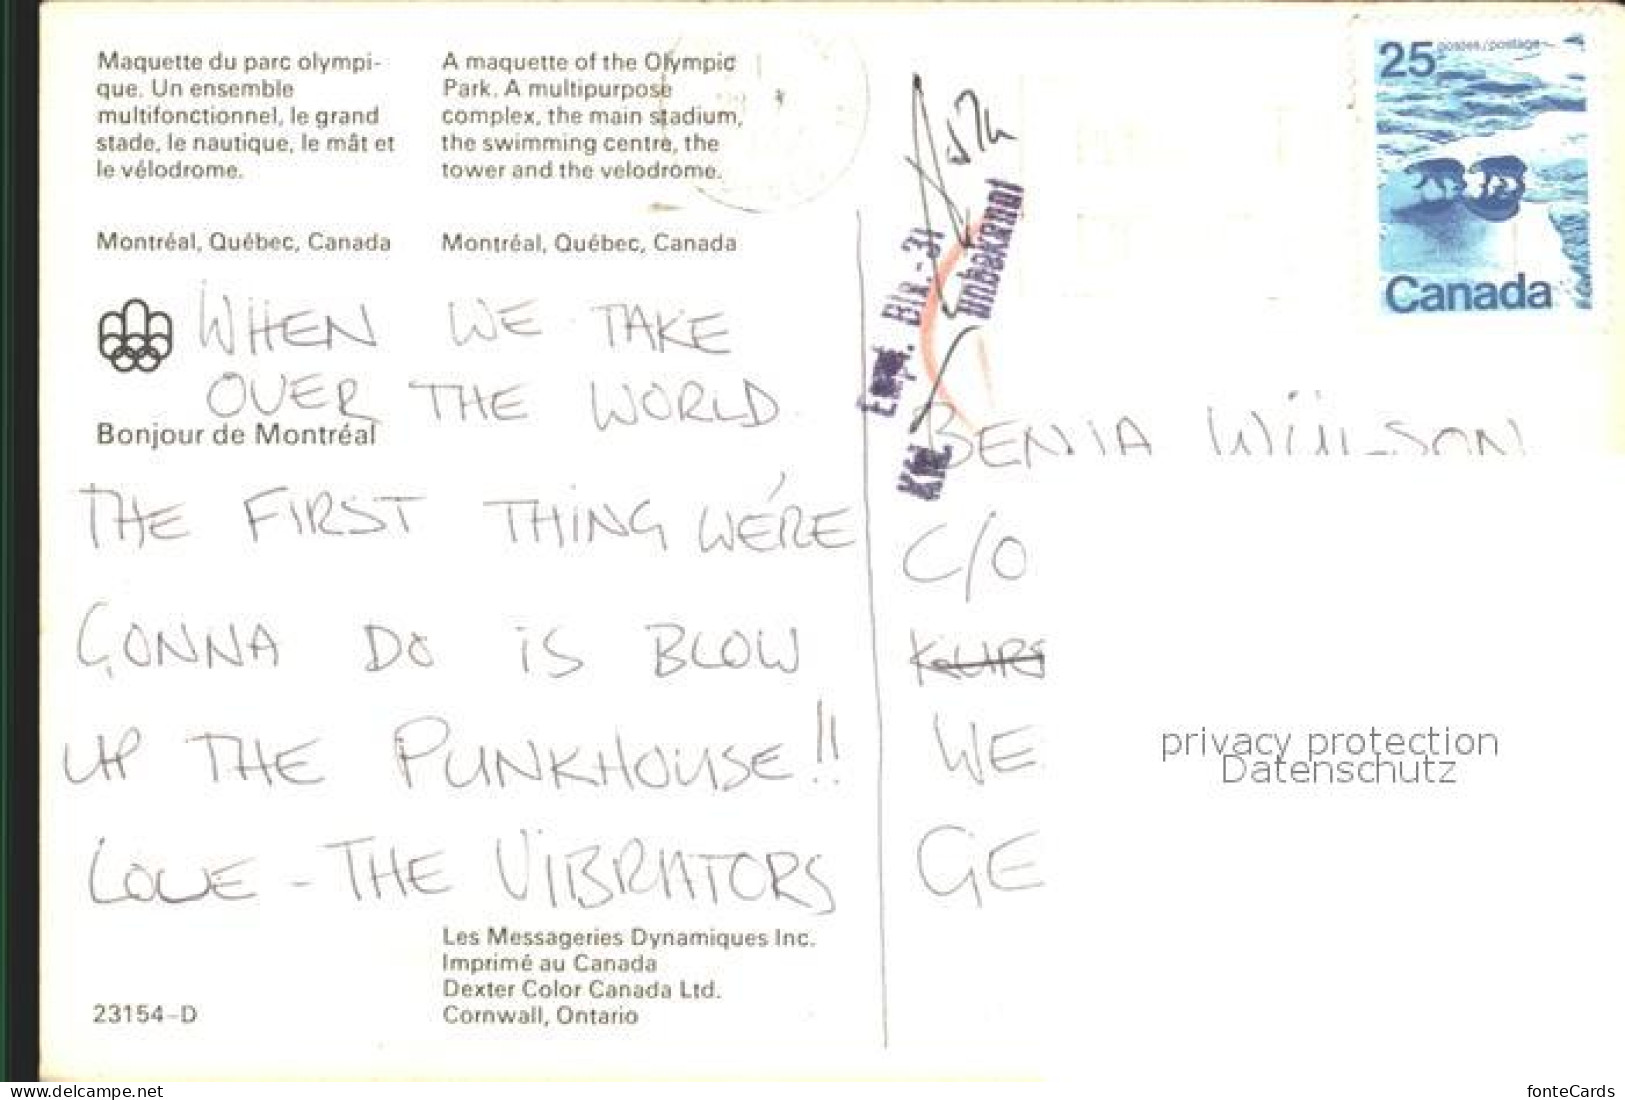 Maquette du parc olympi-
que. Un ensemble
multifonctionnel, le grand
stade, le nautique, le mât et
le vélodrome.
Montréal, Québec, Canada
A maquette of the Olympic
Park. A multipurpose
complex, the main stadium,
the swimming centre, the
tower and the velodrome.
Montréal, Québec, Canada
WHEN WE TAKE
OVER THE WORLD
Bonjour de Montréal
THE FIRST THING WE'RE
GONNA DO IS BLOW
UP THE PUNKHOUSE!!
LOVE - THE VIBRATORS
Les Messageries Dynamiques Inc.
Imprimé au Canada
Dexter Color Canada Ltd.
Cornwall, Ontario
23154-D
25 postes/postage
Canada
Empf. Blk.-31
unbekannt
BENJA
C/O
WE
GE
privacy protection
Datenschutz
fonteCards
www.delcampe.net